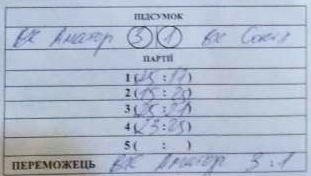 ПІДСУМОК
ВК Аматор 3 1 ВК Сокіл
ПАРТІЇ
1 (25 : 17)
2 (15 : 25)
3 (25 : 21)
4 (23 : 25)
5 ( : )
ПЕРЕМОЖЕЦЬ ВК Аматор 3 : 1